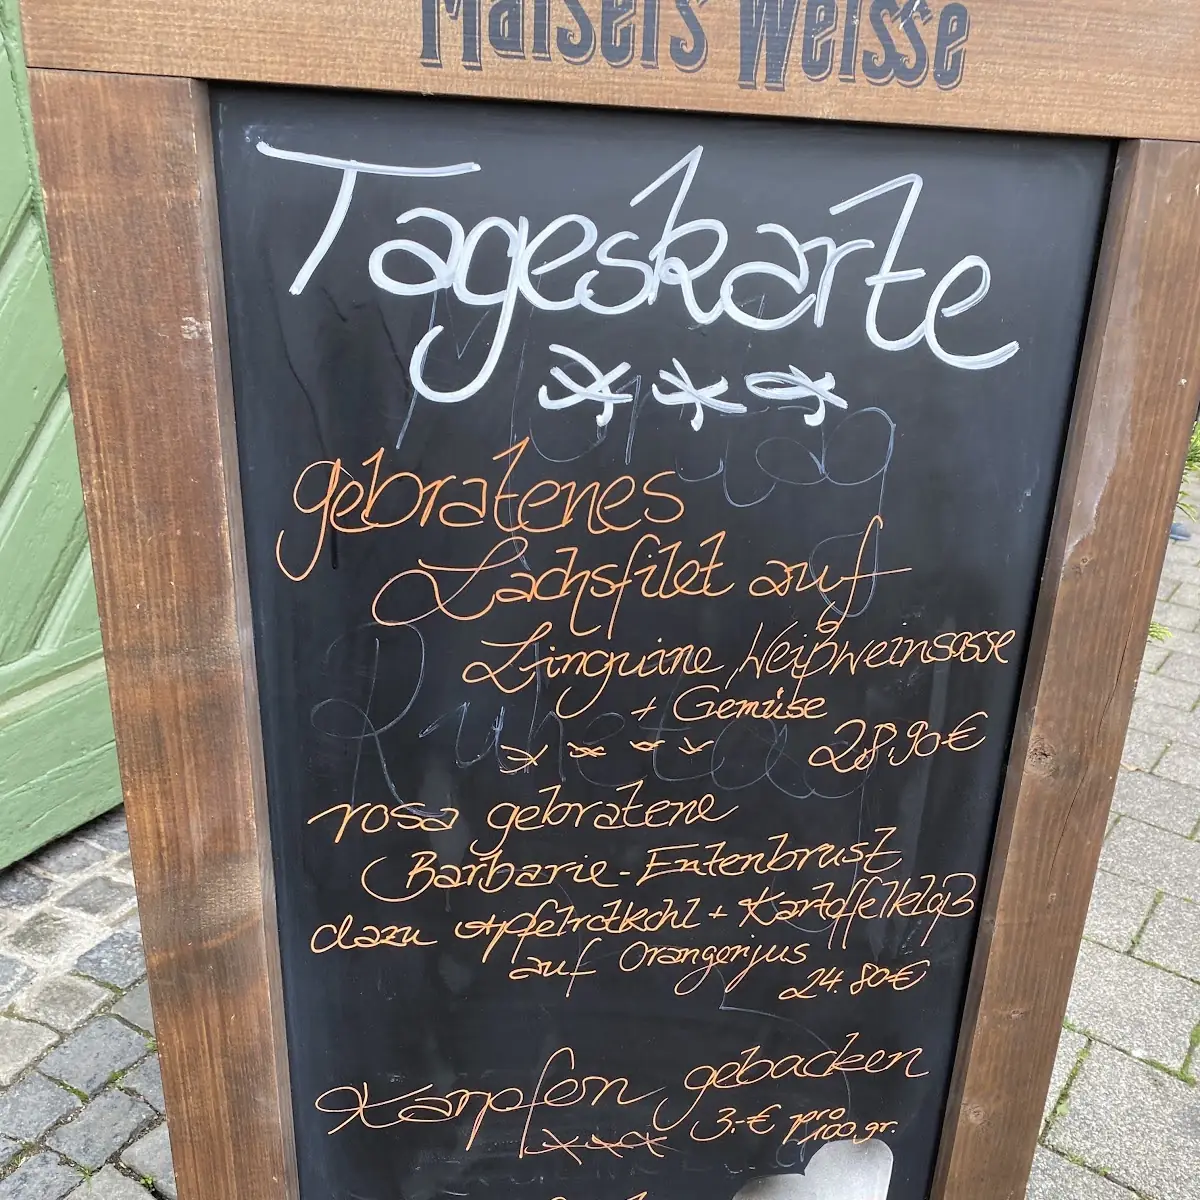 Maisel's Weisse
Tageskarte
***
gebratenes
Lachsfilet auf
Linguine, Weißweinsosse
+ Gemüse
28,90€
rosa gebratene
Barbarie-Entenbrust
dazu Apfelrotkohl + Kartoffelkloß
auf Orangenjus
24.80€
Karpfen gebacken
3,-€ pro
100 gr.
***